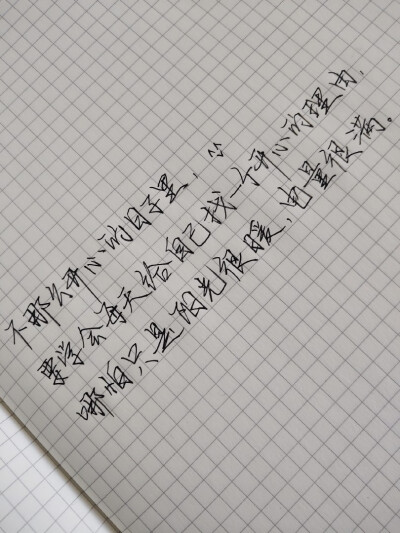 不那么开心的日子里，
要学会每天给自己找一个开心的理由，
哪怕只是阳光很暖，电量很满。